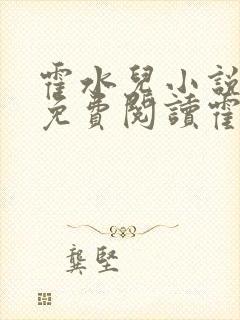 霍水兒小說
免費閱讀霍
龔堅